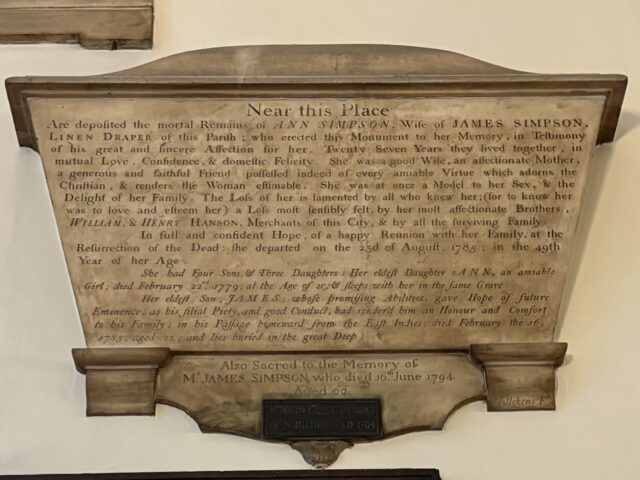 Near this Place
Are deposited the mortal Remains of ANN SIMPSON, Wife of JAMES SIMPSON,
LINEN DRAPER of this Parish; who erected this Monument to her Memory, in Testimony
of his great and sincere Affection for her. Twenty Seven Years they lived together, in
mutual Love, Confidence, & domestic Felicity. She was a good Wife, an affectionate Mother,
a generous and faithful Friend: possessed indeed of every amiable Virtue which adorns the
Christian, & renders the Woman estimable. She was at once a Model to her Sex, & the
Delight of her Family. The Loss of her is lamented by all who knew her; (for to know her
was to love and esteem her) a Loss most sensibly felt, by her most affectionate Brothers,
WILLIAM, & HENRY HANSON, Merchants of this City, & by all the surviving Family.
In full and confident Hope, of a happy Reunion with her Family, at the
Resurrection of the Dead: she departed on the 23d of August, 1785; in the 49th
Year of her Age.
She had Four Sons, & Three Daughters: Her eldest Daughter ANN, an amiable
Girl; died February 22d 1779; at the Age of & sleeps with her in the same Grave
Her eldest Son, JAMES: whose promising Abilities, gave Hope of future
Eminence, as his filial Piety, and good Conduct, had render'd him an Honour and Comfort
to his Family; in his Passage homeward from the East Indies, died February the 16,
1785; aged 22; and lies buried in the great Deep.
Also Sacred to the Memory of
Mr. JAMES SIMPSON, who died 16th June 1794
Aged